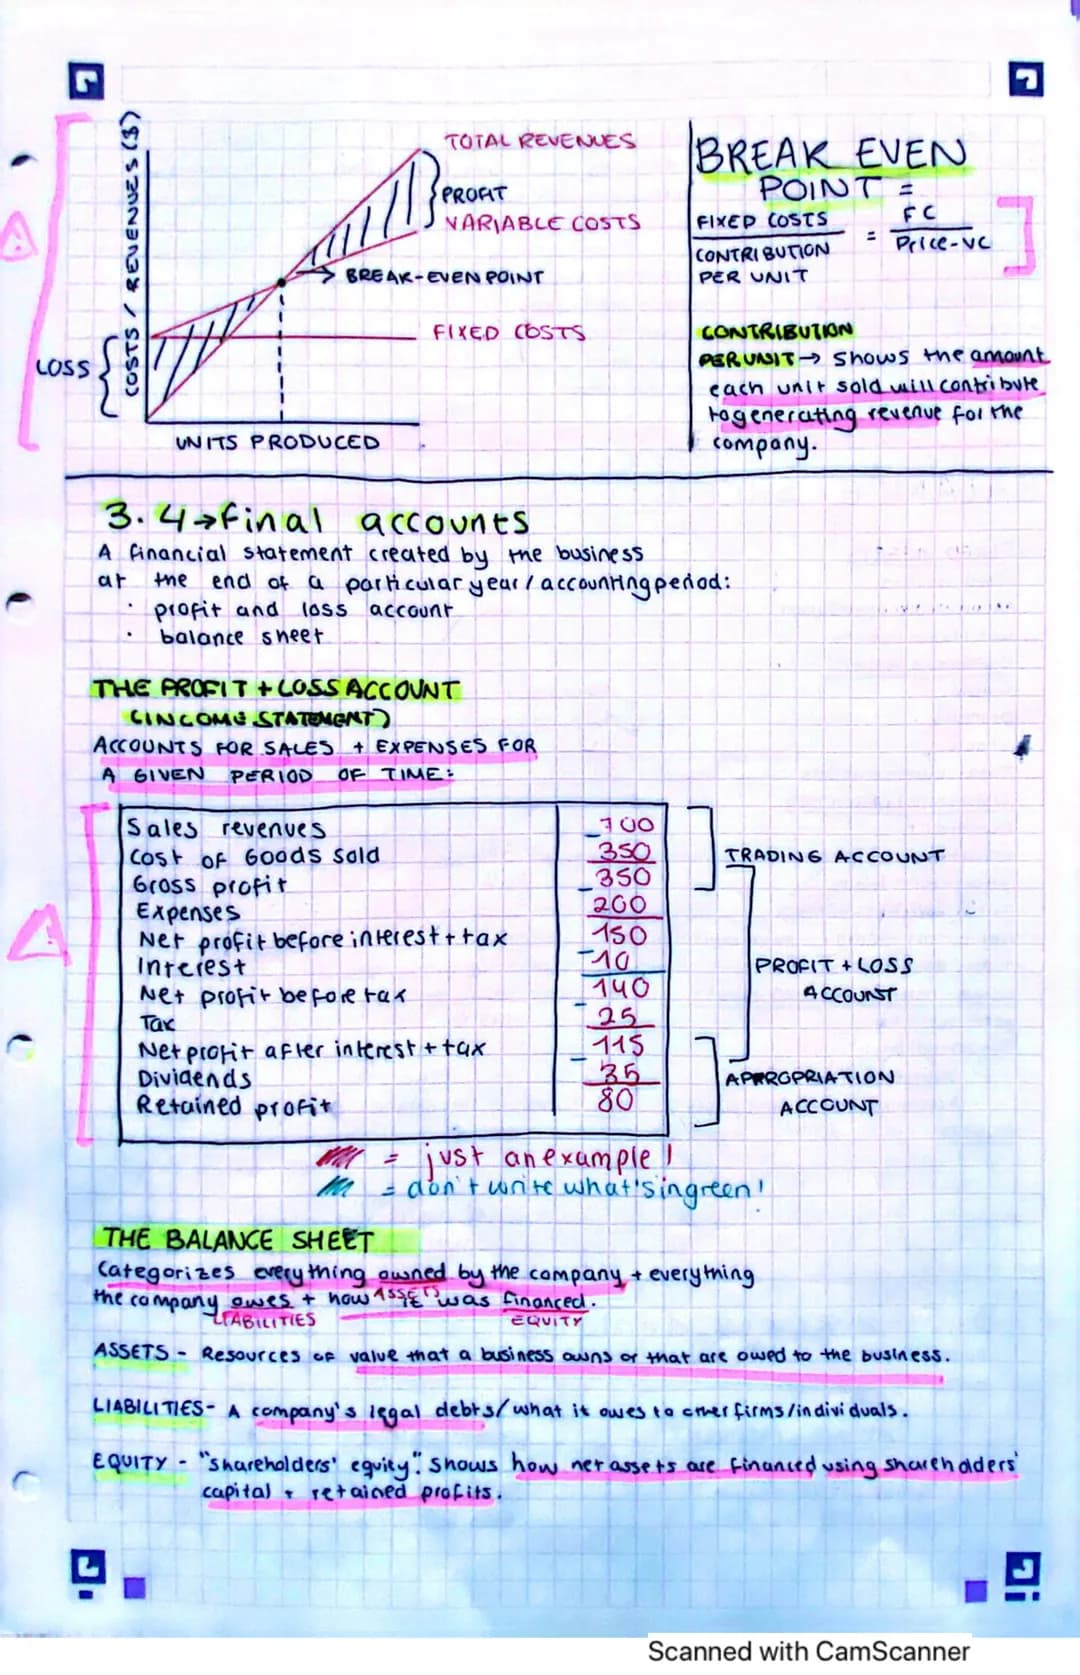 COSTS / REVENUES ($)
TOTAL REVENUES
PROFIT
VARIABLE COSTS
BREAK-EVEN POINT
FIXED COSTS
LOSS
UNITS PRODUCED
BREAK EVEN
POINT =
FIXED COSTS
CONTRIBUTION
PER UNIT
= FC
Price-VC
CONTRIBUTION
PER UNIT → shows the amount
each unit sold will contribute
to generating revenue for the
company.
3.4→final accounts
A financial statement created by the business
at the end of a particular year / accounting period:
· profit and loss account
· balance sheet
THE PROFIT + LOSS ACCOUNT
(INCOME STATEMENT)
ACCOUNTS FOR SALES + EXPENSES FOR
A GIVEN PERIOD OF TIME:
Sales revenues 700
Cost of Goods Sold - 350
Gross profit 350
Expenses - 200
Net profit before interest + tax 150
Interest - 10
Net profit before tax 140
Tax - 25
Net profit after interest + tax 115
Dividends - 35
Retained profit 80
TRADING ACCOUNT
PROFIT + LOSS
ACCOUNT
APPROPRIATION
ACCOUNT
= just an example!
= don't write what's in green!
THE BALANCE SHEET
Categorizes everything owned by the company + everything
ASSETS
the company owes + how it was financed.
LIABILITIES EQUITY
ASSETS - Resources of value that a business owns or that are owed to the business.
LIABILITIES- A company's legal debts/what it owes to other firms/individuals.
EQUITY - "shareholders' equity". Shows how net assets are financed using shareholders'
capital + retained profits.
Scanned with CamScanner